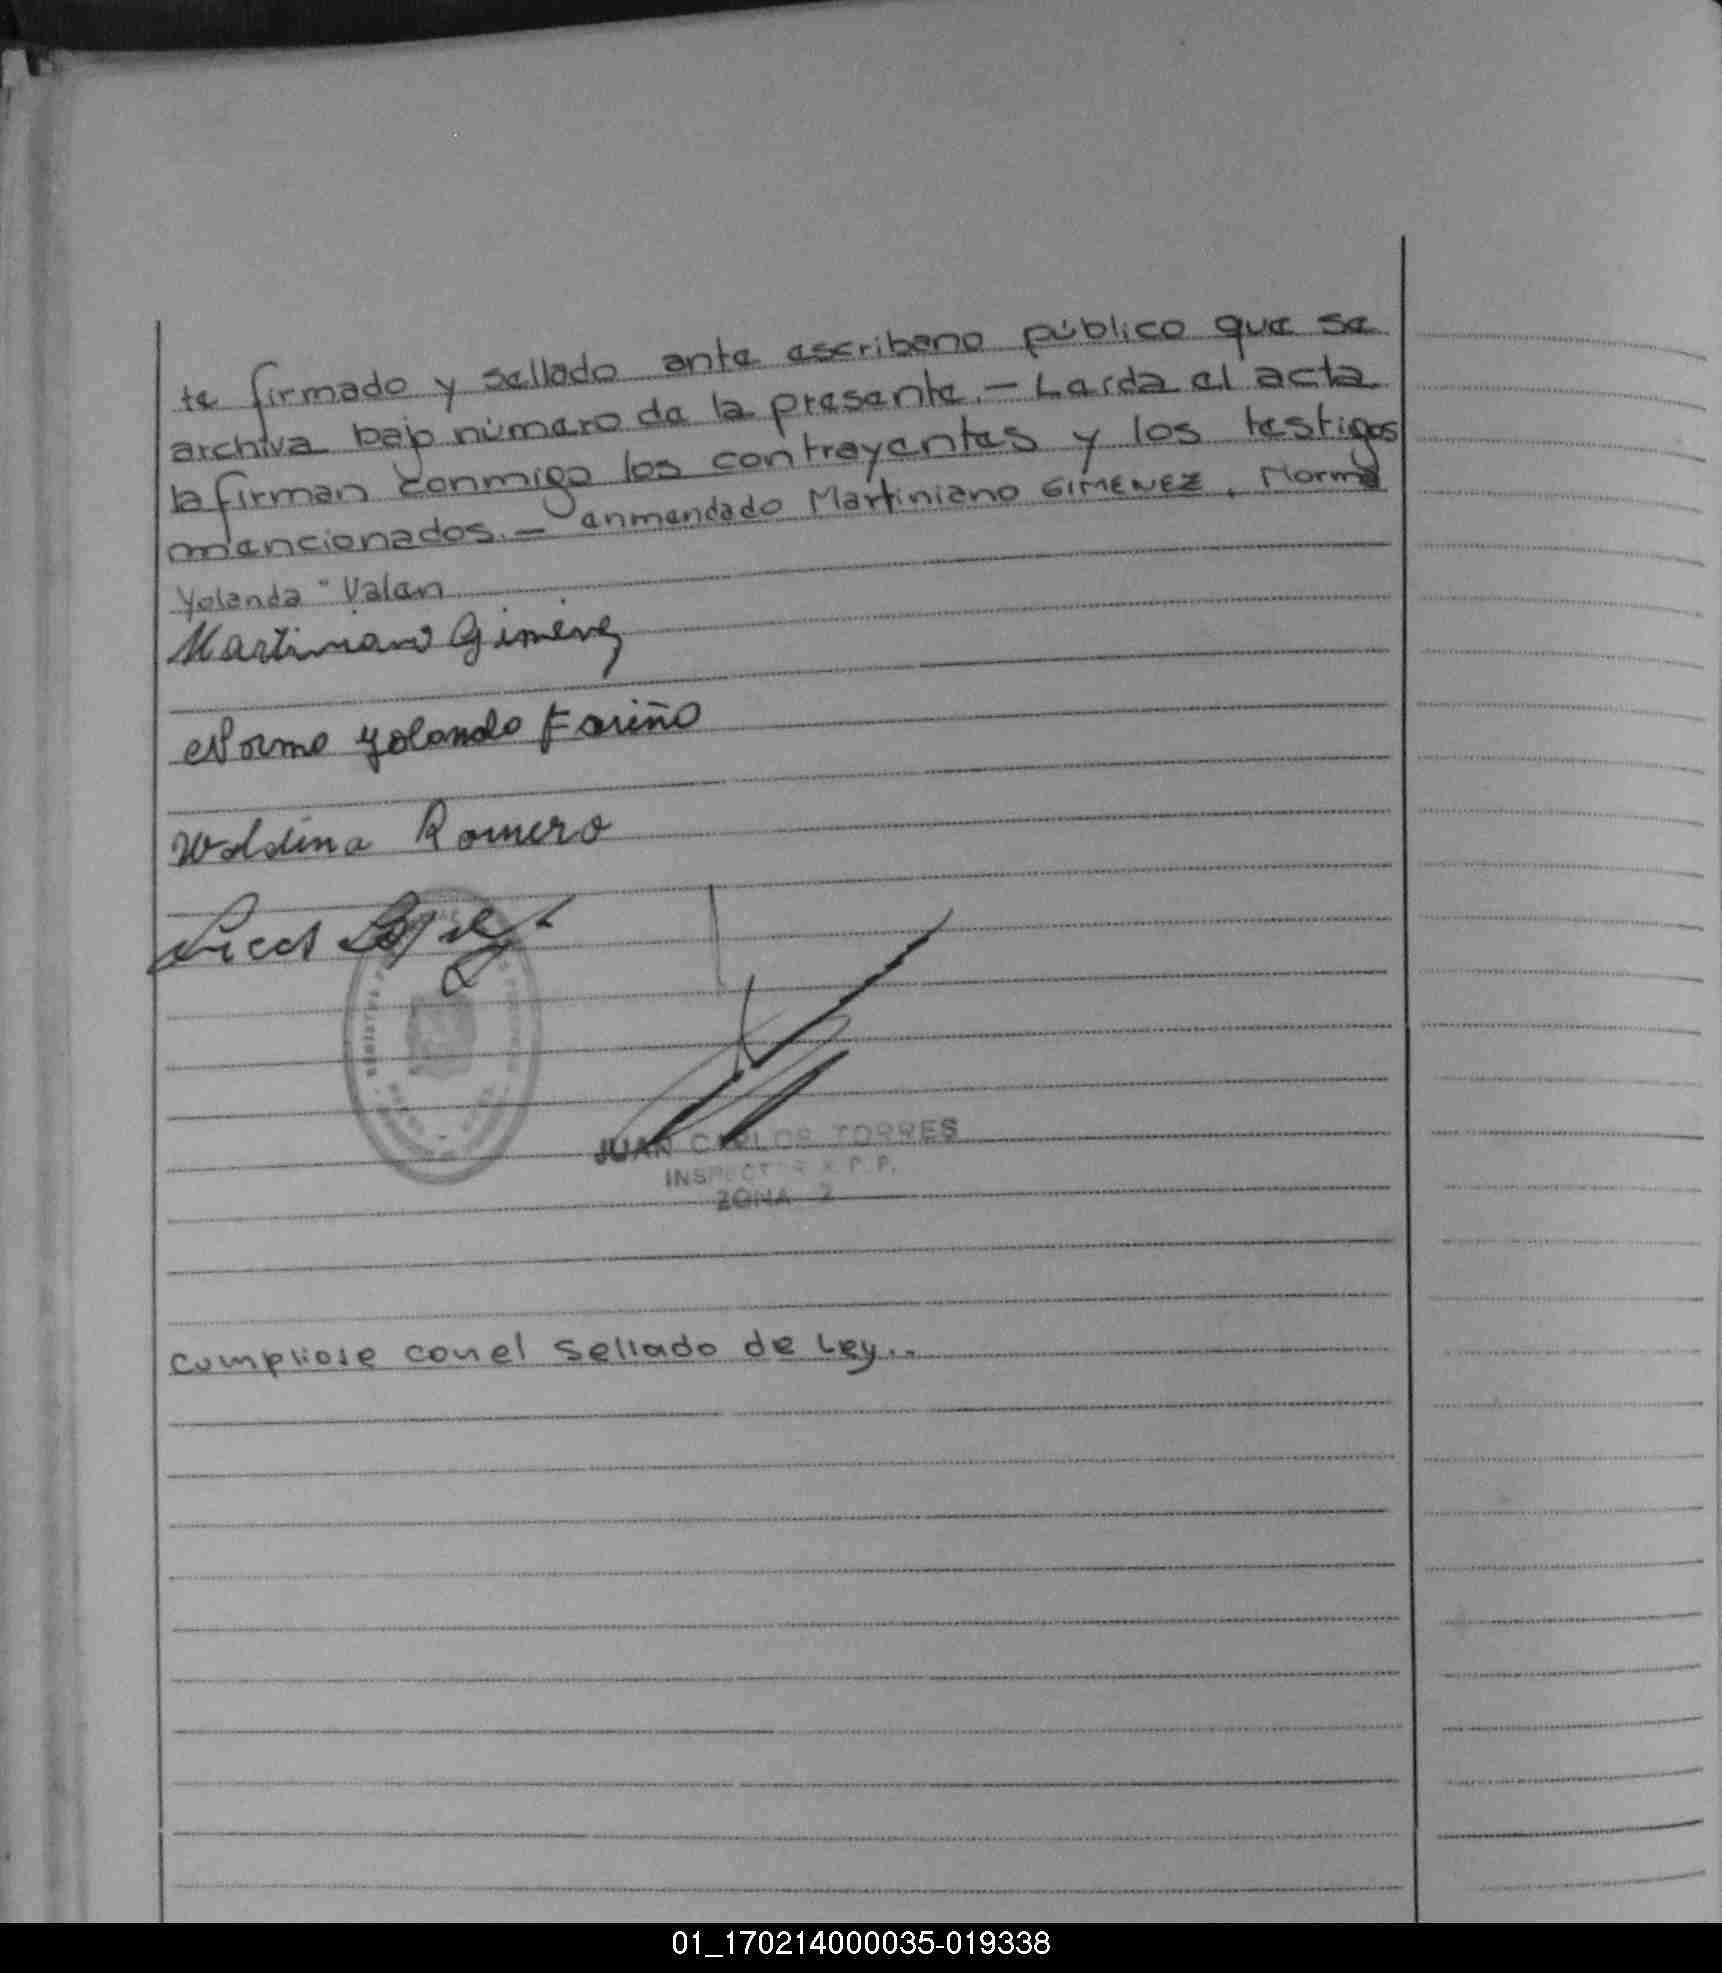 te firmado y sellado ante escribano público que se
archiva bajo número de la presente.- Leída el acta
la firman conmigo los contrayentes y los testigos
mencionados.- enmendado Martiniano GIMENEZ, Norma
Yolanda " Valen
Martiniano Giménez
Norma Yolanda Fariña
Waldina Romero
López
JUAN CARLOS TORRES
INSPECTOR R.P.P.
ZONA 2
cumpliose con el sellado de Ley..
01_170214000035-019338